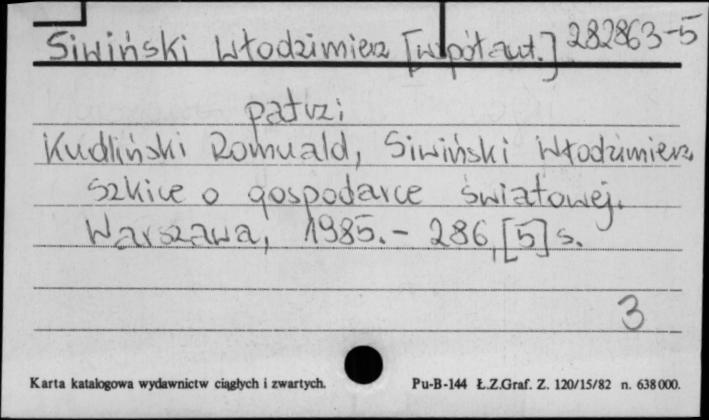 Siwiński Włodzimierz [współaut.] 282863-5
patrz:
Kudliński Romuald, Siwiński Włodzimierz,
Szkice o gospodarce światowej.
Warszawa, 1985.- 286, [5] s.
3
Karta katalogowa wydawnictw ciągłych i zwartych. Pu-B-144 Ł.Z.Graf. Z. 120/15/82 n. 638 000.